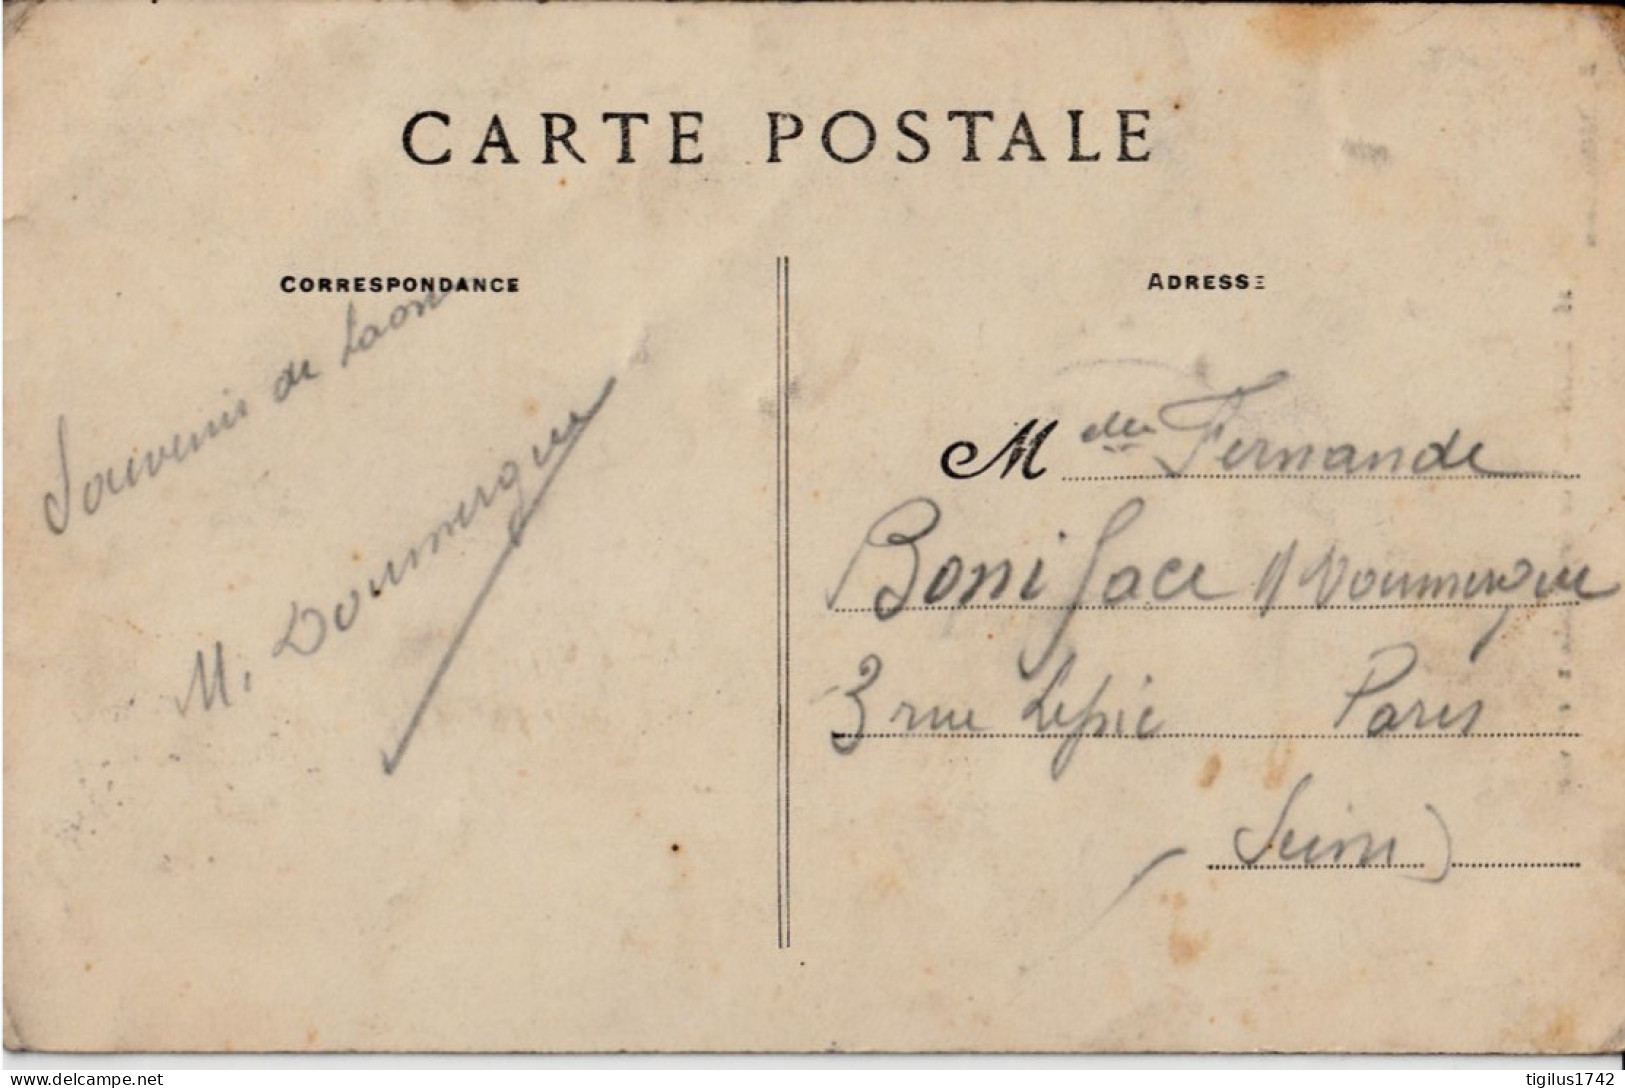 CARTE POSTALE
CORRESPONDANCE
Souvenir de Laon
M. Doumergue
ADRESSE
Mdelle Fernande
Boniface // Doumergue
3 rue Lepic Paris
(Seine)
delcampe.net
tigilus1742